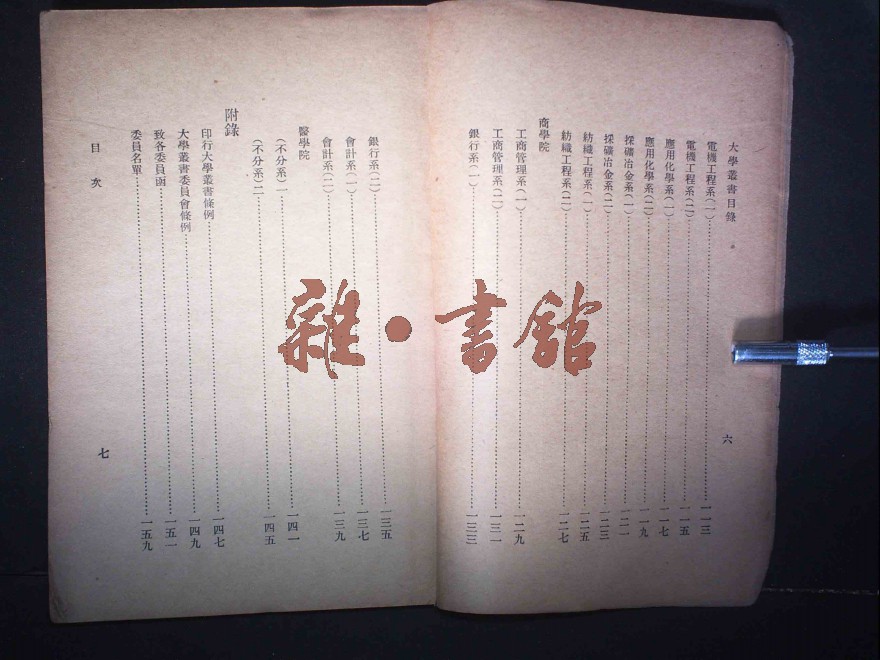 大學叢書目錄
六
電機工程系(一)……一一三
電機工程系(二)……一一五
應用化學系(一)……一一七
應用化學系(二)……一一九
採礦冶金系(一)……一二一
採礦冶金系(二)……一二三
紡織工程系(一)……一二五
紡織工程系(二)……一二七
商學院
工商管理系(一)……一二九
工商管理系(二)……一三一
銀行系(一)……一三三
銀行系(二)……一三五
會計系(一)……一三七
會計系(二)……一三九
醫學院
(不分系)一……一四一
(不分系)二……一四五
附錄
印行大學叢書條例……一四七
大學叢書委員會條例……一四九
致各委員函……一五一
委員名單……一五九
目次
七
雜·書館